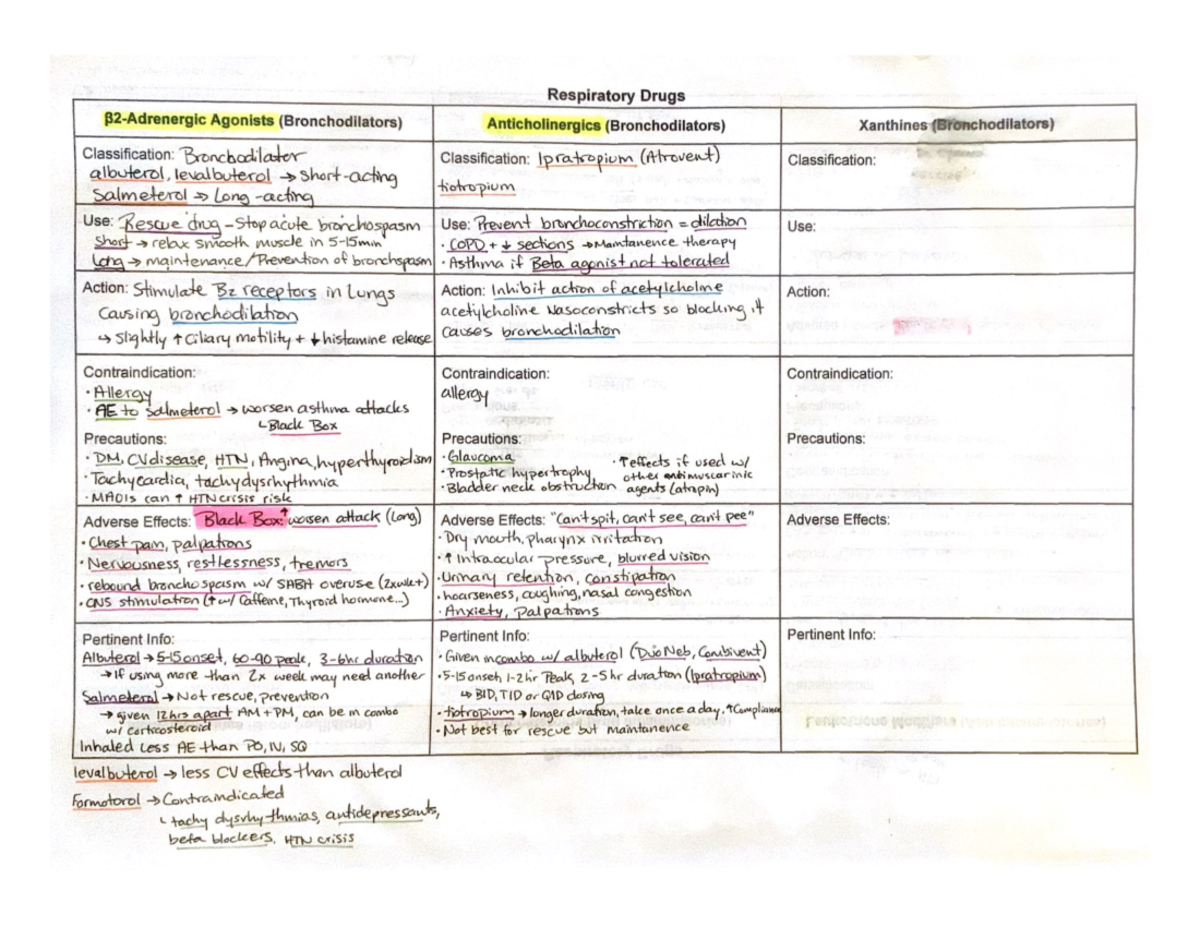 Respiratory Drugs
β2-Adrenergic Agonists (Bronchodilators)
Classification: Bronchodilator
albuterol, levalbuterol → Short-acting
Salmeterol → Long-acting
Use: Rescue drug - Stop acute bronchospasm
Short → relax smooth muscle in 5-15min
Long → maintenance/Prevention of bronchospasm
Action: Stimulate B2 receptors in Lungs
Causing bronchodilation
↳ Slightly ↑ Ciliary motility + ↓ histamine release
Contraindication:
· Allergy
· AE to salmeterol → worsen asthma attacks
↳ Black Box
Precautions:
· DM, CV disease, HTN, Angina, hyperthyroidism
· Tachycardia, tachydysrhythmia
· MAOIs can ↑ HTN crisis risk
Adverse Effects: Black Box: ↑ worsen attack (Long)
· Chest pain, palpatrons
· Nervousness, restlessness, tremors
· rebound bronchospasm w/ SABA overuse (2xwk+)
· CNS stimulation (↑ w/ Caffeine, Thyroid hormone...)
Pertinent Info:
Albuterol → 5-15 onset, 60-90 peak, 3-6hr duration
→ If using more than 2x week may need another
Salmeterol → Not rescue, prevention
→ given 12hrs apart AM + PM, can be in combo
w/ corticosteroid
Inhaled Less AE than PO, IV, SQ
Anticholinergics (Bronchodilators)
Classification: Ipratropium (Atrovent)
tiotropium
Use: Prevent bronchoconstriction = dilation
· COPD + ↓ sections → Maintanence therapy
· Asthma if Beta agonist not tolerated
Action: Inhibit action of acetylcholine
acetylcholine vasoconstricts so blocking it
causes bronchodilation
Contraindication:
allergy
Precautions:
· Glaucoma
· Prostatic hypertrophy
· Bladder neck obstruction
· ↑ effects if used w/
other antimuscarinic
agents (atropin)
Adverse Effects: "Can't spit, can't see, can't pee"
· Dry mouth, pharynx irritation
· ↑ Intraocular pressure, blurred vision
· Urinary retention, constipation
· hoarseness, coughing, nasal congestion
· Anxiety, Palpatrons
Pertinent Info:
· Given in combo w/ albuterol (DuoNeb, Combivent)
· 5-15 onset, 1-2 hr Peak, 2-5 hr duration (Ipratropium)
↳ BID, TID or QID dosing
· tiotropium → longer duration, take once a day. ↑ Compliance
· Not best for rescue but maintanence
Xanthines (Bronchodilators)
Classification:
Use:
Action:
Contraindication:
Precautions:
Adverse Effects:
Pertinent Info:
levalbuterol → less CV effects than albuterol
Formotorol → Contraindicated
↳ tachy dysrhythmias, antidepressants,
beta blockers, HTN crisis